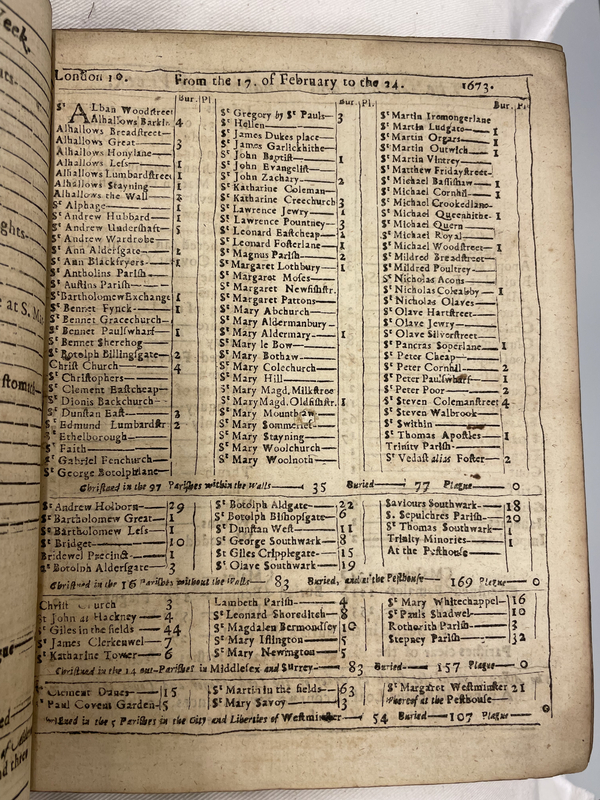 London 10. From the 17. of February to the 24. 1673.
Bur. Pl.
St Alban Woodstreet
Alhallows Barkin 4
Alhallows Breadstreet
Alhallows Great 3
Alhallows Honylane
Alhallows Less 1
Alhallows Lumbardstreet 1
Alhallows Stayning 1
Alhallows the Wall
St Alphage 1
St Andrew Hubbard 1
St Andrew Undershaft 5
St Andrew Wardrobe
St Ann Aldersgate 2
St Ann Blackfryers 1
St Antholins Parish
St Austins Parish
St Bartholomew Exchange 1
St Bennet Fynck 1
St Bennet Gracechurch
St Bennet Paulswharf 1
St Bennet Sherehog
St Botolph Billingsgate 2
Christ Church 4
St Christophers
St Clement Eastcheap
St Dionis Backchurch
St Dunstan East 3
St Edmund Lumbardstr 2
St Ethelborough
St Faith
St Gabriel Fenchurch
St George Botolphlane
Bur. Pl.
St Gregory by St Pauls 3
St Hellen
St James Dukes place
St James Garlickhithe
St John Baptist 1
St John Evangelist
St John Zachary 2
St Katharine Coleman
St Katharine Creechurch 3
St Lawrence Jewry 1
St Lawrence Pountney 3
St Leonard Eastcheap 2
St Leonard Fosterlane 1
St Magnus Parish 2
St Margaret Lothbury 1
St Margaret Moses
St Margaret Newfishstr.
St Margaret Pattons
St Mary Abchurch
St Mary Aldermanbury
St Mary Aldermary 1
St Mary le Bow
St Mary Bothaw
St Mary Colechurch
St Mary Hill
St Mary Magd. Milkstree
St Mary Magd. Oldfishstr. 1
St Mary Mounthaw
St Mary Sommerset
St Mary Stayning
St Mary Woolchurch
St Mary Woolnoth
Bur. Pl.
St Martin Iremongerlane
St Martin Ludgate 1
St Martin Orgars 1
St Martin Outwich 1
St Martin Vintrey
St Matthew Fridaystreet
St Michael Bassishaw 1
St Michael Cornhil 1
St Michael Crookedlane
St Michael Queenhithe 1
St Michael Quern
St Michael Royal
St Michael Woodstreet 1
St Mildred Breadstreet
St Mildred Poultrey
St Nicholas Acons
St Nicholas Coleabby 1
St Nicholas Olaves
St Olave Hartstreet
St Olave Jewry
St Olave Silverstreet
St Pancras Soperlane 1
St Peter Cheap
St Peter Cornhil 2
St Peter Paulswharf 1
St Peter Poor 2
St Steven Colemanstreet 4
St Steven Walbrook
St Swithin
St Thomas Apostles 1
Trinity Parish
St Vedast alias Foster 2
Christned in the 97 Parishes within the Walls 35 Buried 77 Plague 0
St Andrew Holborn 29
St Bartholomew Great 1
St Bartholomew Less 1
St Bridget 10
Bridewel Precinct 1
St Botolph Aldersgate 3
St Botolph Aldgate 22
St Botolph Bishopsgate 6
St Dunstan West 11
St George Southwark 8
St Giles Cripplegate 15
St Olave Southwark 19
Saviours Southwark 18
S. Sepulchres Parish 20
St Thomas Southwark 1
Trinity Minories 1
At the Pesthouse
Christned in the 16 Parishes without the Walls 83 Buried, and at the Pesthouse 169 Plague 0
Christ Church 3
St John at Hackney 4
St Giles in the fields 44
St James Clerkenwel 7
St Katharine Tower 6
Lambeth Parish 4
St Leonard Shoreditch 8
St Magdalen Bermondsey 10
St Mary Islington 5
St Mary Newington 5
St Mary Whitechappel 16
St Pauls Shadwel 10
Rotherith Parish 3
Stepney Parish 32
Christned in the 14 out-Parishes in Middlesex and Surrey 83 Buried 157 Plague 0
Clement Danes 15
St Paul Covent Garden 5
St Martin in the fields 63
St Mary Savoy 3
St Margaret Westminster 21
Whereof at the Pesthouse
Christned in the 5 Parishes in the City and Liberties of Westminster 54 Buried 107 Plague 0